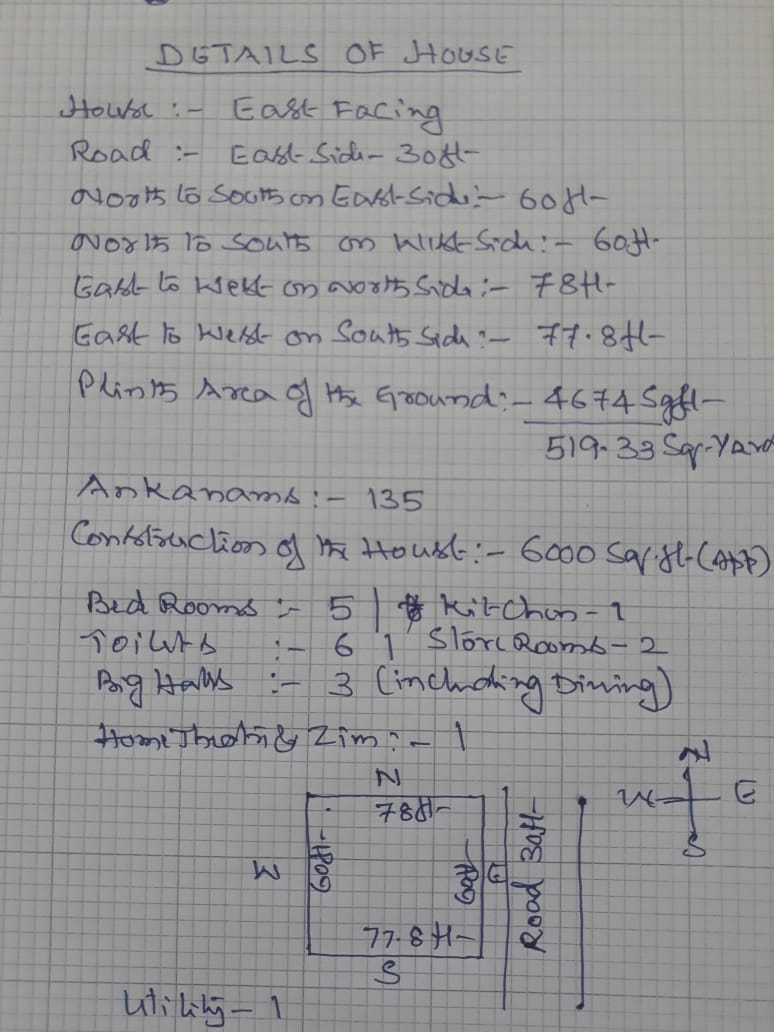 DETAILS OF HOUSE
House :- East Facing
Road :- East Side - 30ft
North to South on East Side :- 60ft
North to South on West Side :- 60ft.
East to West on North Side :- 78ft
East to West on South Side :- 77.8ft
Plinth Area of the Ground :- 4674 Sqft
519.33 Sqr.Yard
Ankanams :- 135
Construction of the House :- 6000 Sq.ft (App)
Bed Rooms :- 5 | Kitchen - 1
Toilets :- 6 | Store Rooms - 2
Big Halls :- 3 (including Dining)
Home Theatre & Zim :- 1
N
W E
S
N
78ft
W 60ft 60ft E Road 30ft
77.8ft
S
Utility - 1